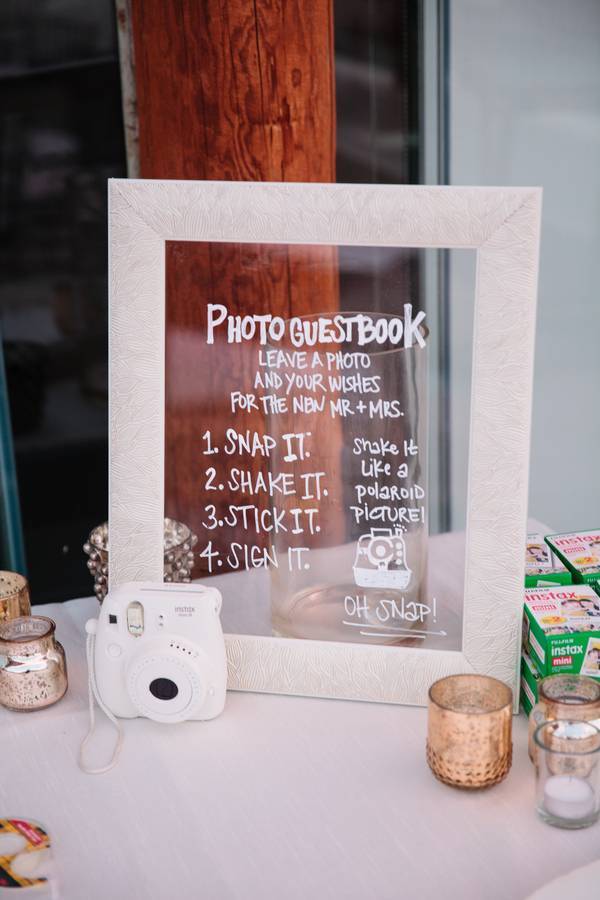 PHOTO GUESTBOOK
LEAVE A PHOTO
AND YOUR WISHES
FOR THE NEW MR + MRS.
1. SNAP IT.
2. SHAKE IT.
3. STICK IT.
4. SIGN IT.
Shake It
Like a
polaroid
PICTURE!
OH SNAP!
instax
instax
mini
instax
mini
FUJIFILM
instax
mini